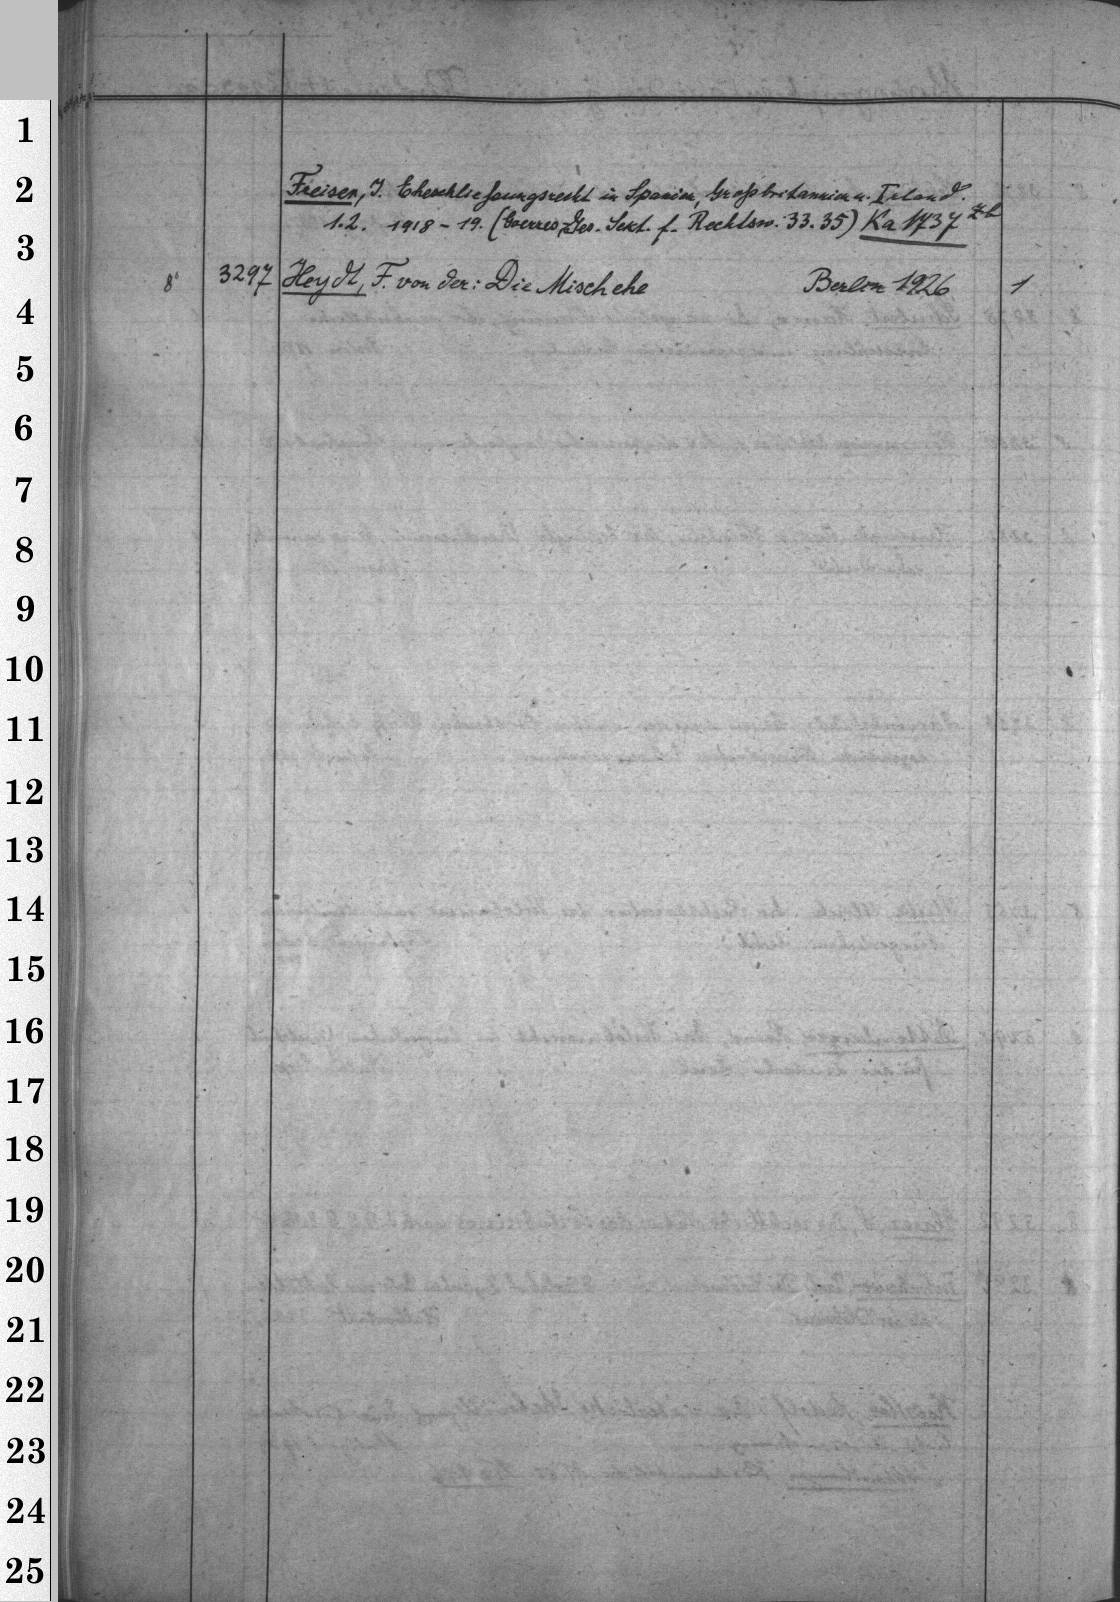 1
2
Freisen, J. Eheschliessungsrecht in Spanien, Grossbritannien u. Irland.
1.2. 1918-19. (Goerres-Ges. Sekt. f. Rechtsw. 33.35) Ka 1737
3
8° 3297 Heydt, F. von der: Die Mischehe Berlin 1926 1
4
5
6
7
8
9
10
11
12
13
14
15
16
17
18
19
20
21
22
23
24
25